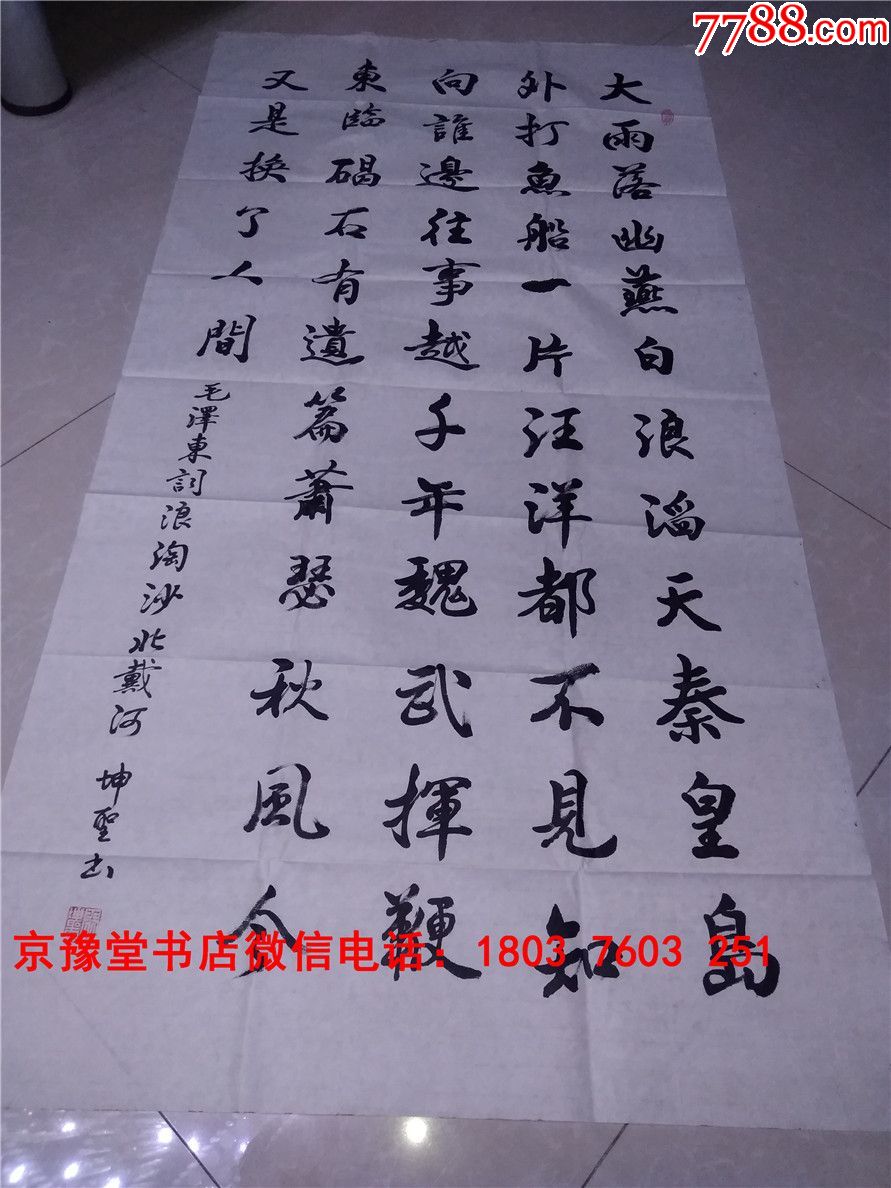 7788.com
大雨落幽燕白浪滔天秦皇島
外打魚船一片汪洋都不見知
向誰邊往事越千年魏武揮鞭
東臨碣石有遺篇蕭瑟秋風今
又是換了人間
毛澤東詞浪淘沙北戴河 坤聖书
京豫堂书店微信电话：1803 7603 251